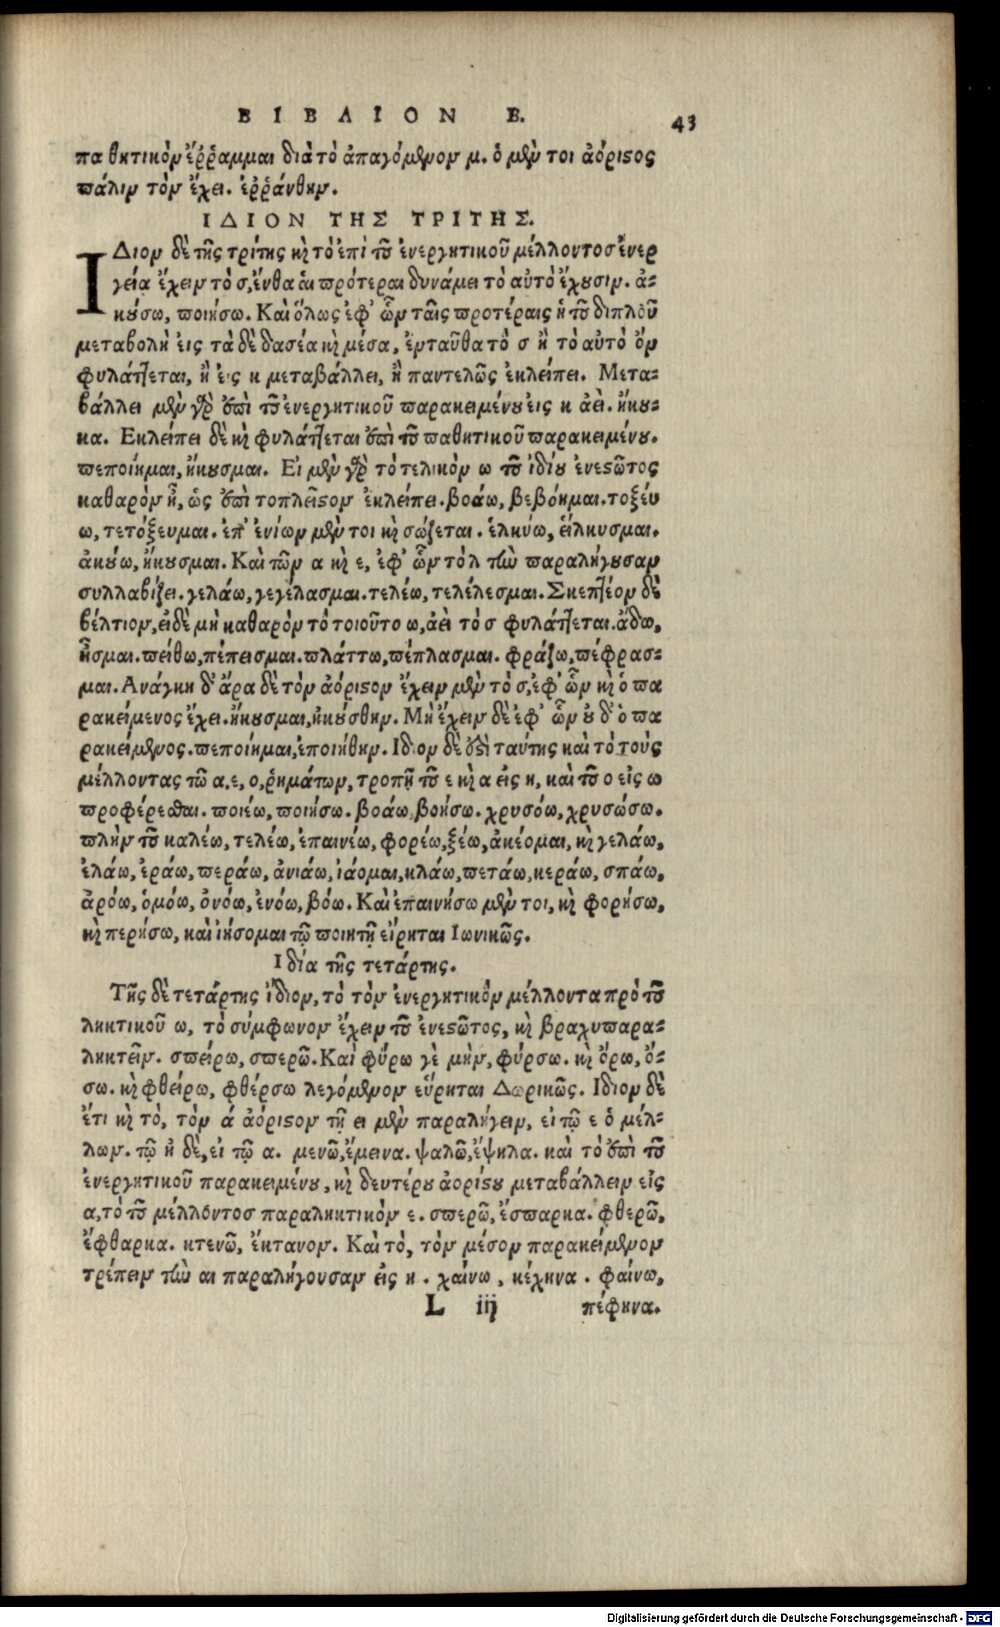 ΒΙΒΛΙΟΝ Β.
43
παθητικὸν ἔῤῥαμμαι διὰ τὸ ἀπαγόμενον μ. ὁ μέν τοι ἀόριστος
πάλιν τὸν ἔχει. ἐῤῥάνθην.
ΙΔΙΟΝ ΤΗΣ ΤΡΙΤΗΣ.
ΙΔιον δὲ τῆς τρίτης καὶ τὸ ἐπὶ τοῦ ἐνεργητικοῦ μέλλοντος ἐνερ
γείᾳ ἔχειν τὸ σ, ἔνθα αἱ πρότεραι δυνάμει τὸ αὐτὸ ἔχουσιν. ἀ-
κούσω, ποιήσω. Καὶ ὅλως ἐφ' ὧν ταῖς προτέραις ἡ τοῦ διπλοῦ
μεταβολὴ εἰς τὰ δὲ δασέα καὶ μέσα, ἐνταῦθα τὸ σ ἢ τὸ αὐτὸ ὂν
φυλάττεται, ἢ εἰς κ μεταβάλλει, ἢ παντελῶς ἐκλείπει. Μετα-
βάλλει μὲν γὰρ ἐπὶ τοῦ ἐνεργητικοῦ παρακειμένου εἰς κ ἀεί. ἤκου-
κα. Εκλείπει δὲ καὶ φυλάττεται ἐπὶ τοῦ παθητικοῦ παρακειμένου.
πεποίημαι, ἤκουσμαι. Εἰ μὲν γὰρ τὸ τελικὸν ω τοῦ ἰδίου ἐνεστῶτος
καθαρὸν ᾖ, ὡς ἐπὶ τοπλεῖστον ἐκλείπει. βοάω, βεβόημαι. τοξεύ
ω, τετόξευμαι. ἐπ' ἐνίων μέν τοι καὶ σώζεται. ἑλκύω, εἵλκυσμαι.
ἀκούω, ἤκουσμαι. Καὶ τῶν α καὶ ε, ἐφ' ὧν τὸ λ τὴν παραλήγουσαν
συλλαβίζει. γελάω, γεγέλασμαι. τελέω, τελέλεσμαι. Σκεπτέον δὲ
βέλτιον, εἰ δὲ μὴ καθαρὸν τὸ τοιοῦτο ω, ἀεὶ τὸ σ φυλάττεται. ἄδω,
ᾖσμαι. πείθω, πέπεισμαι. πλάττω, πέπλασμαι. φράζω, πέφρασ-
μαι. Ανάγκη δ' ἄρα δὲ τὸν ἀόριστον ἔχειν μὲν τὸ σ, ἐφ' ὧν καὶ ὁ πα
ρακείμενος ἔχει. ἤκουσμαι, ἠκούσθην. Μὴ ἔχειν δὲ ἐφ' ὧν οὐδ' ὁ πα
ρακείμενος. πεποίημαι, ἐποιήθην. Ιδιον δὲ ἐπὶ ταύτης καὶ τὸ τοὺς
μέλλοντας τῶ α, ε, ο, ῥημάτων, τροπῇ τοῦ ε καὶ α εἰς η, καὶ τοῦ ο εἰς ω
προφέρεσθαι. ποιέω, ποιήσω. βοάω, βοήσω. χρυσόω, χρυσώσω.
πλὴν τοῦ καλέω, τελέω, ἐπαινέω, φορέω, ξέω, ἀκέομαι, καὶ γελάω,
ἐλάω, ἐράω, περάω, ἀνιάω, ἰάομαι, κλάω, πετάω, κεράω, σπάω,
ἀρόω, ὁμόω, ὀνόω, ἐνόω, βόω. Καὶ ἐπαινήσω μέν τοι, καὶ φορήσω,
καὶ περήσω, καὶ ἰήσομαι τῷ ποιητῇ εἴρηται Ιωνικῶς.
Ιδία τῆς τετάρτης.
Τῆς δὲ τετάρτης ἴδιον, τὸ τὸν ἐνεργητικὸν μέλλοντα πρὸ τοῦ
ληκτικοῦ ω, τὸ σύμφωνον ἔχειν τοῦ ἐνεστῶτος, καὶ βραχυπαρα-
ληκτεῖν. σπείρω, σπερῶ. Καὶ φύρω γὲ μὴν, φύρσω. καὶ ὄρω, ὄ-
σω. καὶ φθείρω, φθέρσω λεγόμενον εὕρηται Δωρικῶς. Ιδιον δὲ
ἔτι καὶ τὸ, τὸν ά ἀόριστον τῇ ει μὲν παραλήγειν, εἰ τῷ ε ὁ μέλ-
λων. τῷ η δὲ, εἰ τῷ α. μενῶ, ἔμεινα. ψαλῶ, ἔψηλα. καὶ τὸ ἐπὶ τοῦ
ἐνεργητικοῦ παρακειμένου, καὶ δευτέρου ἀορίστου μεταβάλλειν εἰς
α, τὸ τοῦ μέλλοντος παραληκτικὸν ε. σπερῶ, ἔσπαρκα. φθερῶ,
ἔφθαρκα. κτενῶ, ἔκτανον. Καὶ τὸ, τὸν μέσον παρακείμενον
τρέπειν τὴν αι παραλήγουσαν εἰς η. χαίνω, κέχηνα. φαίνω,
L iij πέφηνα.
Digitalisierung gefördert durch die Deutsche Forschungsgemeinschaft - DFG